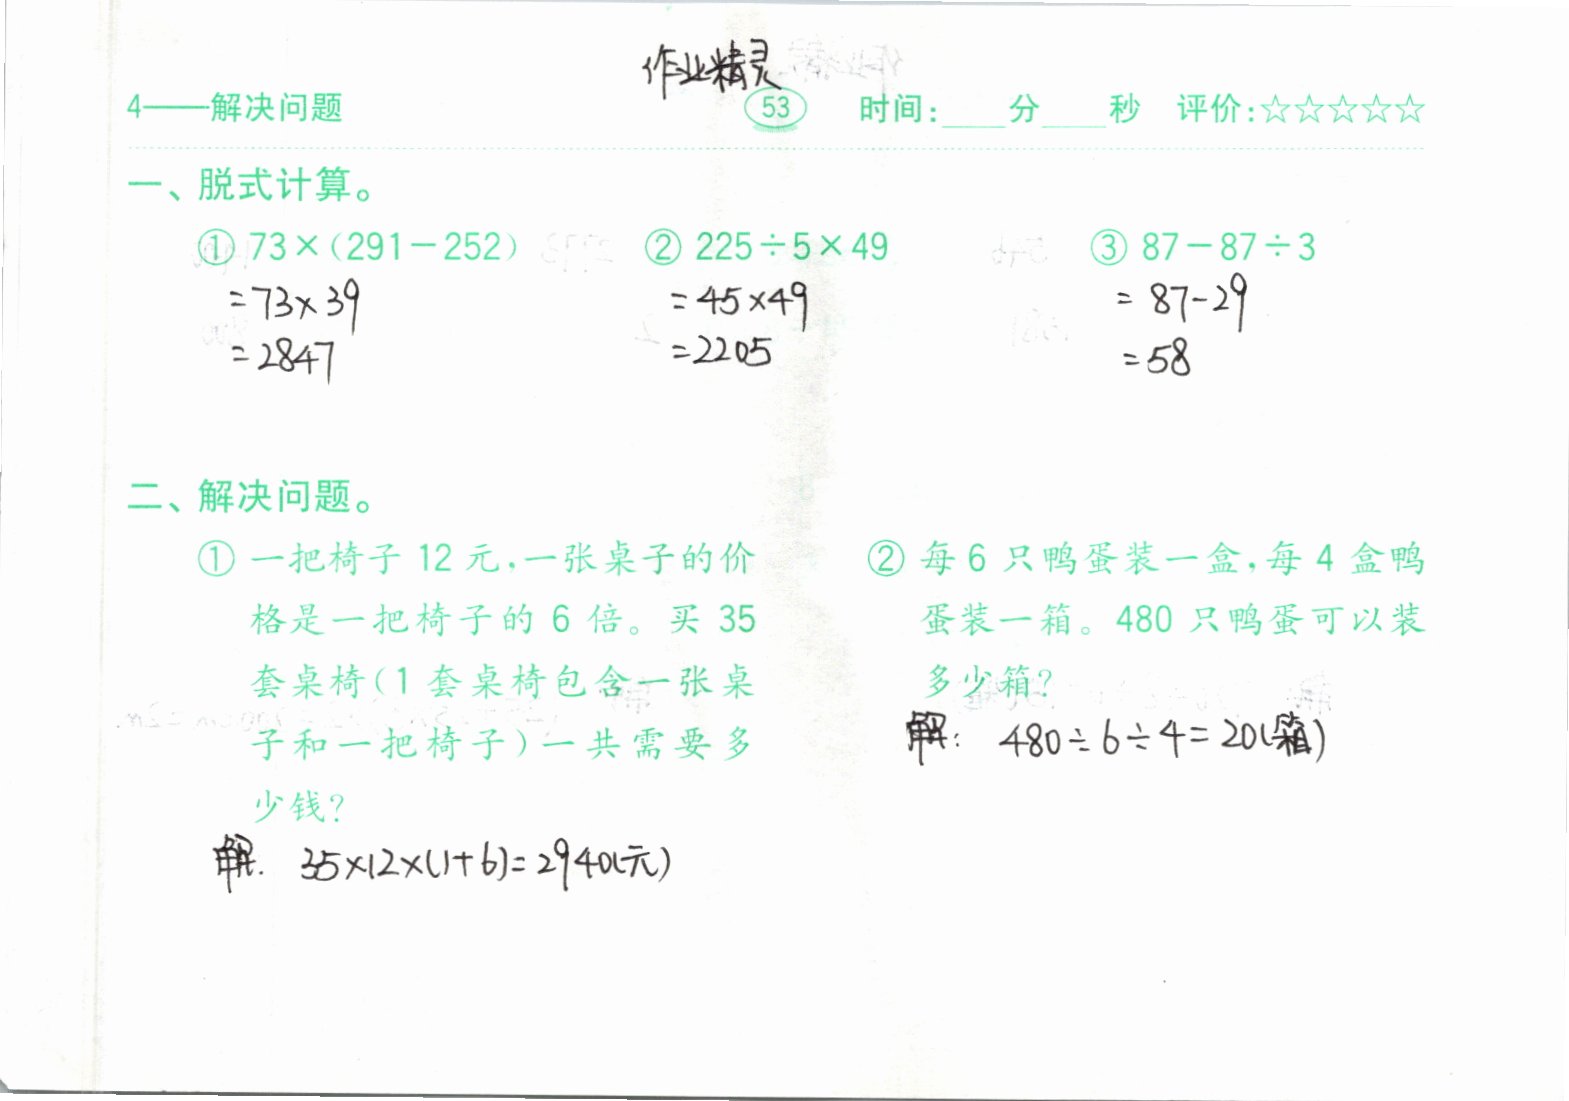 作业精灵
4——解决问题 53 时间:____分____秒 评价:☆☆☆☆☆
一、脱式计算。
① 73×(291-252) ② 225÷5×49 ③ 87-87÷3
=73×39 =45×49 =87-29
=2847 =2205 =58
二、解决问题。
① 一把椅子 12 元,一张桌子的价
格是一把椅子的 6 倍。买 35
套桌椅(1 套桌椅包含一张桌
子和一把椅子)一共需要多
少钱?
解. 35×12×(1+6)=2940(元)
② 每 6 只鸭蛋装一盒,每 4 盒鸭
蛋装一箱。480 只鸭蛋可以装
多少箱?
解: 480÷6÷4=20(箱)